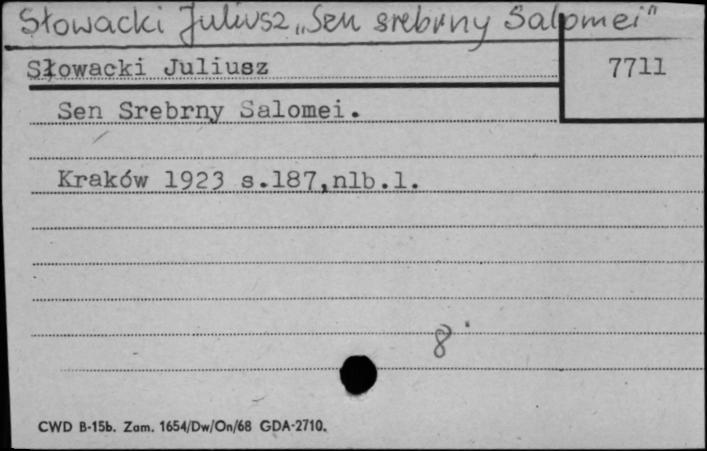 Słowacki Juliusz „Sen srebrny Salomei"
Słowacki Juliusz
7711
Sen Srebrny Salomei.
Kraków 1923 s.187,nlb.1.
8
CWD B-15b. Zam. 1654/Dw/On/68 GDA-2710.